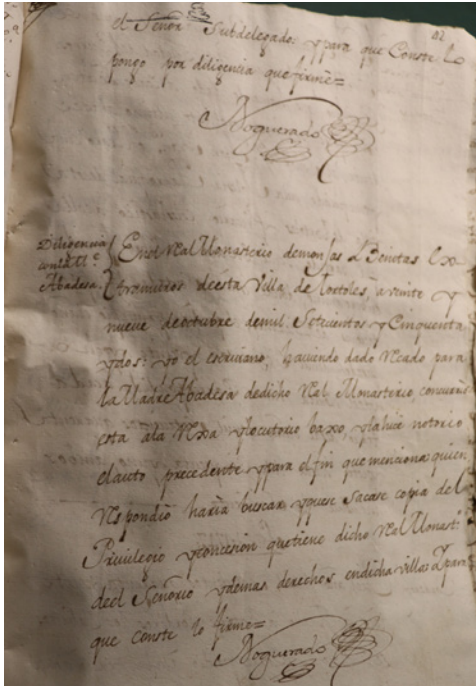 82
el Señor Subdelegado: ypara que Conste lo
pongo por diligencia que firmè=
Noguerado
Diligencia
con la Me.
Abadesa.
En el Real Monasterio demonjas Benitas Ex-
tramuros deesta Villa de Tortoles, a veinte y
nueve deoctubre demil Setecientos y Cinquenta
ydos: yo el escrivano, haviendo dado recado para
la Madre Abadesa dedicho Real Monasterio, concurriò
esta àla Rexa ylocutorio baxo, ylahice notorio
elauto precedente ypara el fin que menciona quien
Respondiò harìa buscar, yquese sacase copia del
Privilegio yconcesion quetiene dicho Real Monastº.
del Señorio ydemas derechos endicha villa: Ypara
que conste lo firmè=
Noguerado